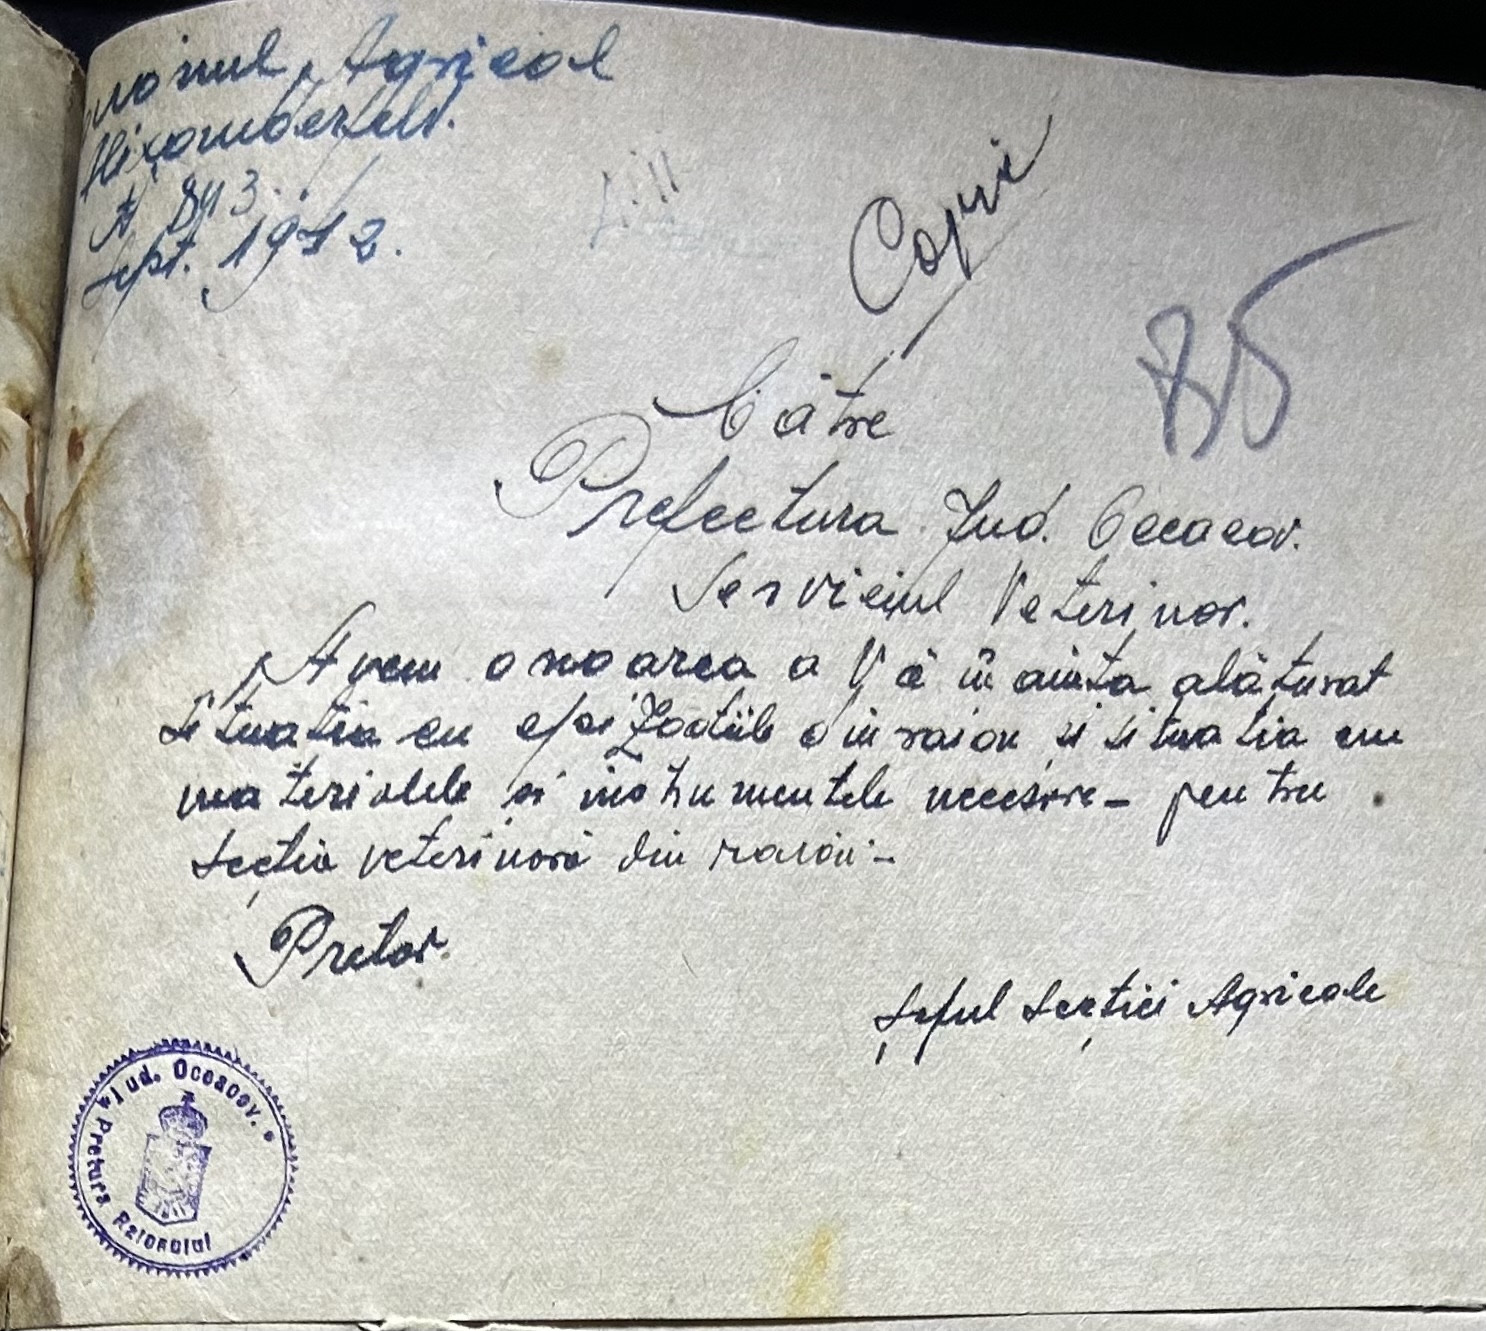 Agricol
Alixanderfeld.
Sept. 1942.
Copie
85
Către
Prefectura Jud. Oceacov.
Serviciul Veterinar.
Avem onoarea a Vă înainta alăturat
situatia cu epizootiile din raion și situatia cu
materialele și instrumentele necesare - pentru
secția veterinară din raion -
Pretor.
Șeful Secției Agricole
Jud. Oceacov.
Pretura Raionului